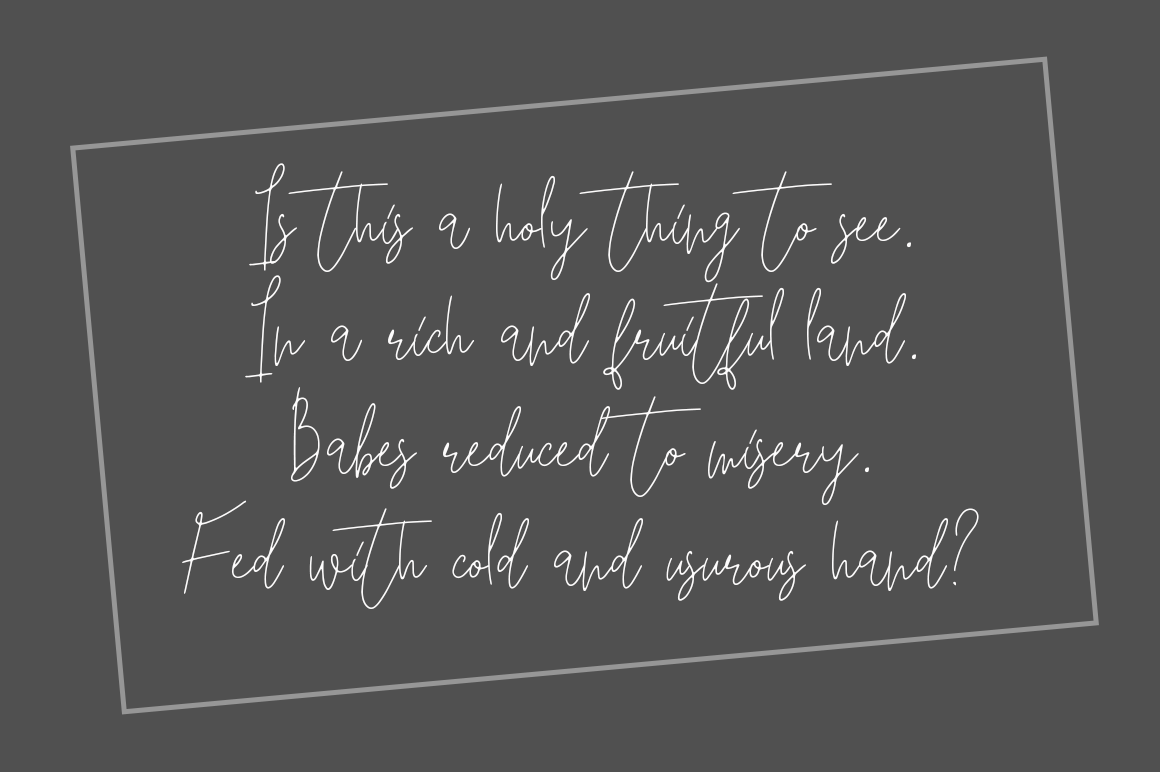 Is this a holy thing to see.
In a rich and fruitful land.
Babes reduced to misery.
Fed with cold and usurous hand?